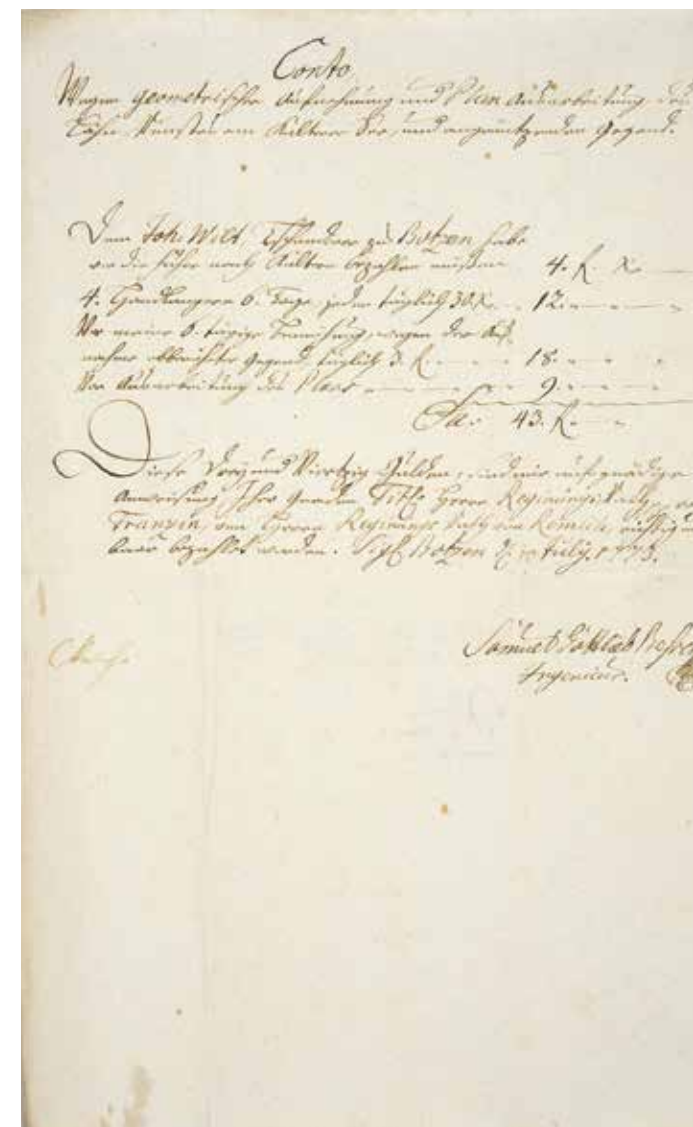 Conto
Wegen geometrischer Aufnehmung und Plan Ausarbeitung des
am Kalterer See, und angräntzenden Gegend.
Dem Joh: Wilt, zu Botzen habe
vor die fuhr nach Kaltern bezahlen müßen 4. f. X.
4. Handlangern 6. Tage, jeder täglich 30 X. 12.
Vor meine 6. tägige Bemühung, wegen der Auf
nahme obbesagter Gegend, täglich 3. f. 18.
Vor Ausarbeitung des Plans 9.
Sa. 43. f.
Diese Drey und Viertzig Gulden, sind mir auf gnädige
Anweisung Ihro Gnaden Titl: Herrn Regierungs Rath
Franzin, von Herrn Regierungs Rath von richtig und
baar bezahlet worden. Sigl: Botzen July. 1773.
Samuel Gottlieb
Ingenieur.